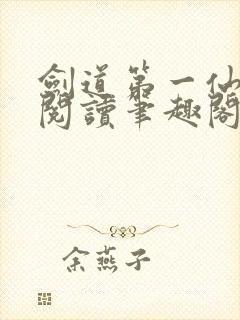 劍道第一仙
閱讀筆趣閣
余燕子